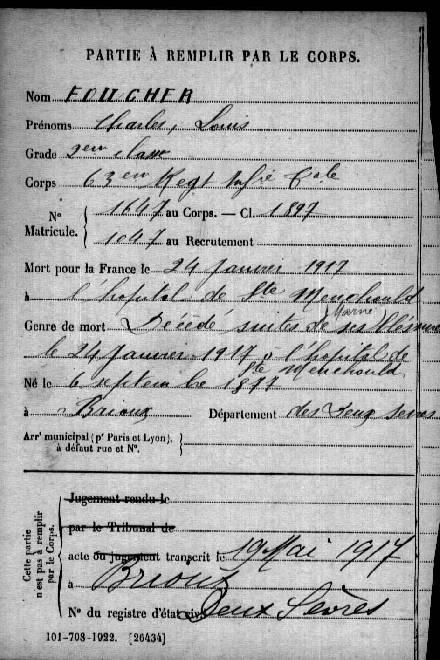 PARTIE À REMPLIR PAR LE CORPS.
Nom FOUCHER
Prénoms Charles, Louis
Grade 2eme classe
Corps 63em Regt Infie Cole
N° Matricule. 1647 au Corps. — Cl. 1897
1047 au Recrutement
Mort pour la France le 24 Janvier 1917
à l'hopital de Ste Menehould
Marne
Genre de mort Décédé suites de ses blessures
le 24 Janvier 1917 à l'hopital de
Ste Menehould
Né le 6 septembre 1877
à Brioux Département des Deux Sevres
Arrt municipal (pr Paris et Lyon),
à défaut rue et N°.
Cette partie n'est pas à remplir par le Corps.
Jugement rendu le
par le Tribunal de
acte ou jugement transcrit le 19 Mai 1917
à Brioux
N° du registre d'état civil Deux Sèvres
101-708-1922. [26434]